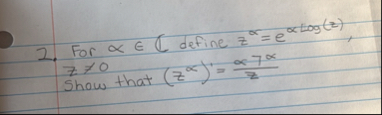 2. For α ∈ ℂ define z^α = e^{α Log(z)},
z ≠ 0
Show that (z^α)' = α z^α / z